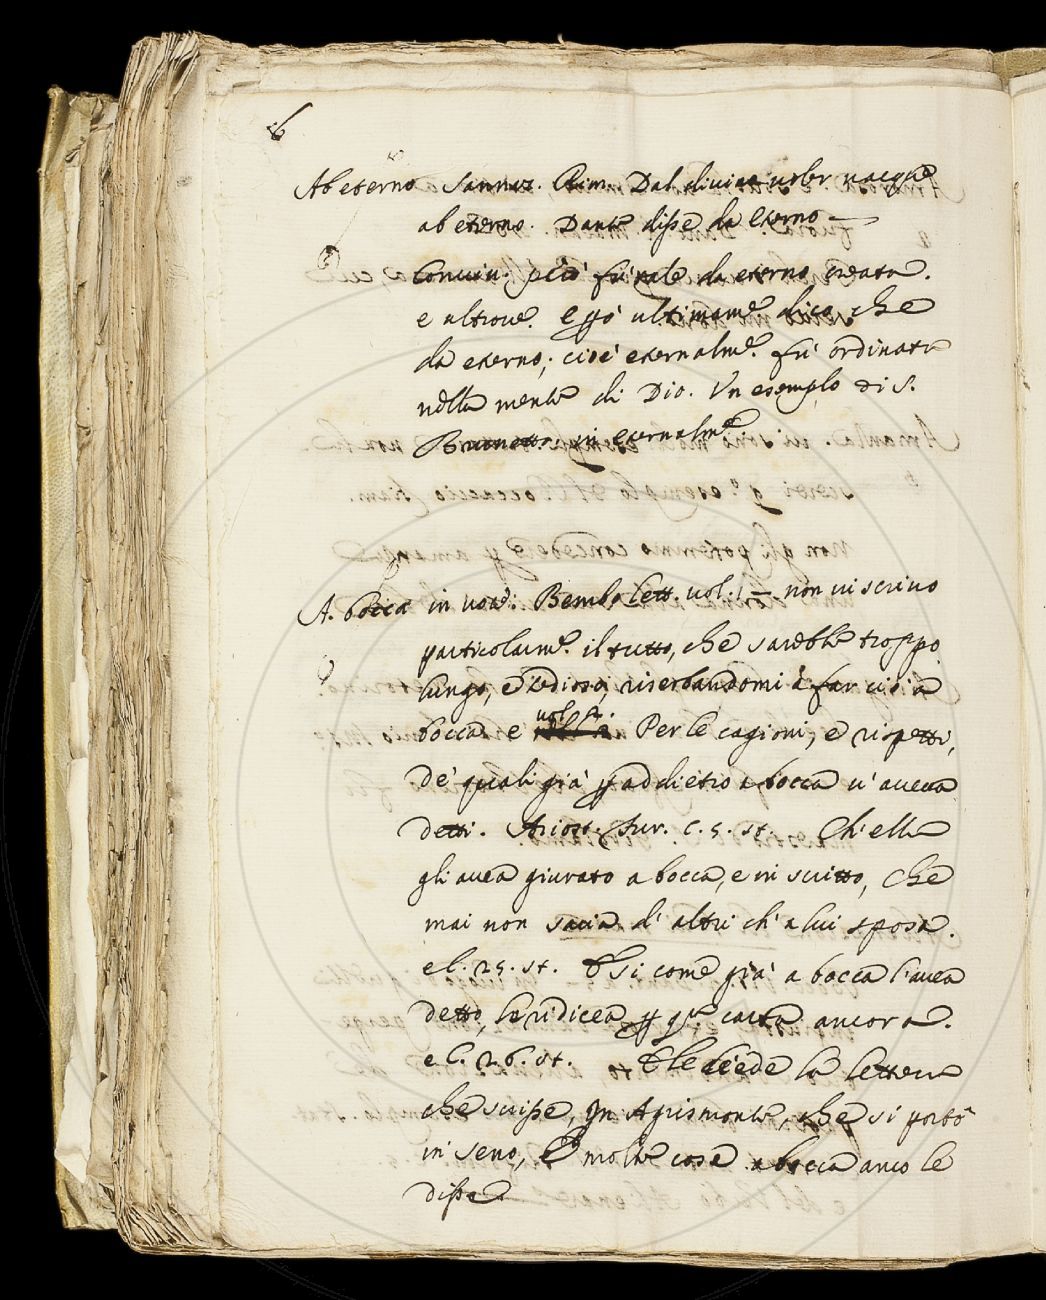 6
Ab eterno Sannaz. Rim. Dal divin voler nacque
ab eterno. Dante disse da Eterno
Conviv. però fù tale da eterno creata.
e altrove. E però ultimam.e dico che
da eterno; cioè eternalm.e fù ordinata
nella mente di Dio. Un esempio di S.
Brunetto. in eternalm.e
A. bocca in voce: Bembo Lett. vol. 1 non vi scrivo
particolarm.e il tutto, che sarebbe troppo
lungo, e tedioso, riserbandomi à far ciò a
bocca e vol. Per le cagioni, e rispetti,
de' quali già p addietro a bocca v' avea
detti. Ariost. Fur. c. 5. st. Ch' ella
gli avea giurato a bocca, e in scritto, che
mai non saria d' altri ch' a lui sposa.
e c. 25. st. E si come già a bocca l' avea
detto, le ridicea p q.ta carta ancora.
e c. 26. st. E le diede la lettera
che scrisse, in Agrismonte, che si portò
in seno, E molte cose a bocca anco le
disse.